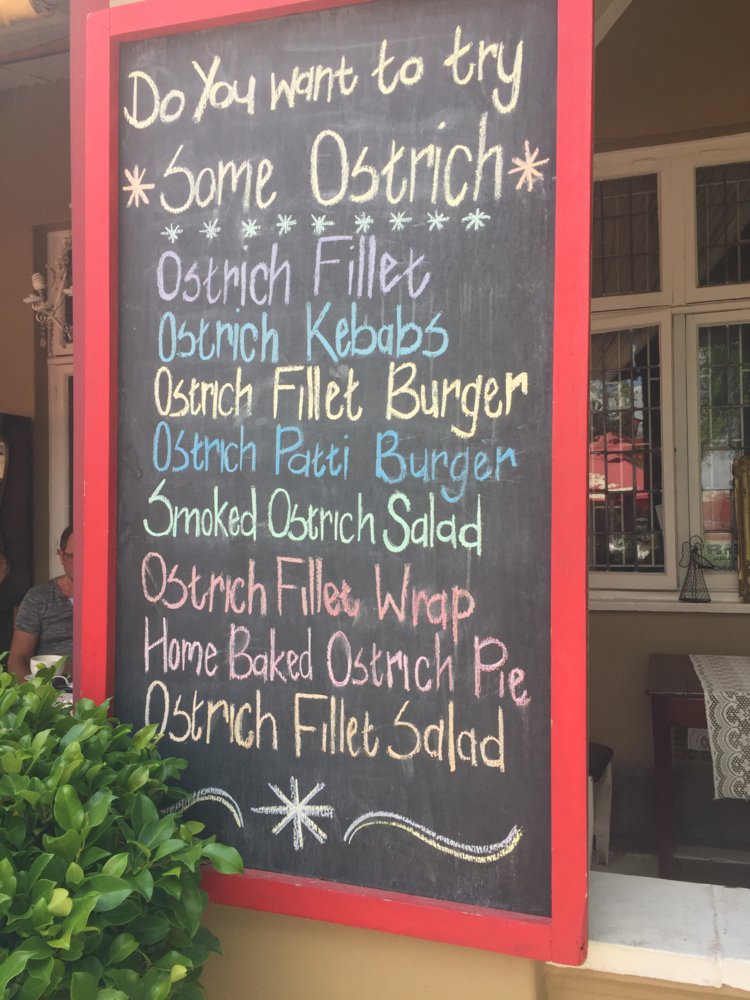 Do You want to try
Some Ostrich
Ostrich Fillet
Ostrich Kebabs
Ostrich Fillet Burger
Ostrich Patti Burger
Smoked Ostrich Salad
Ostrich Fillet Wrap
Home Baked Ostrich Pie
Ostrich Fillet Salad